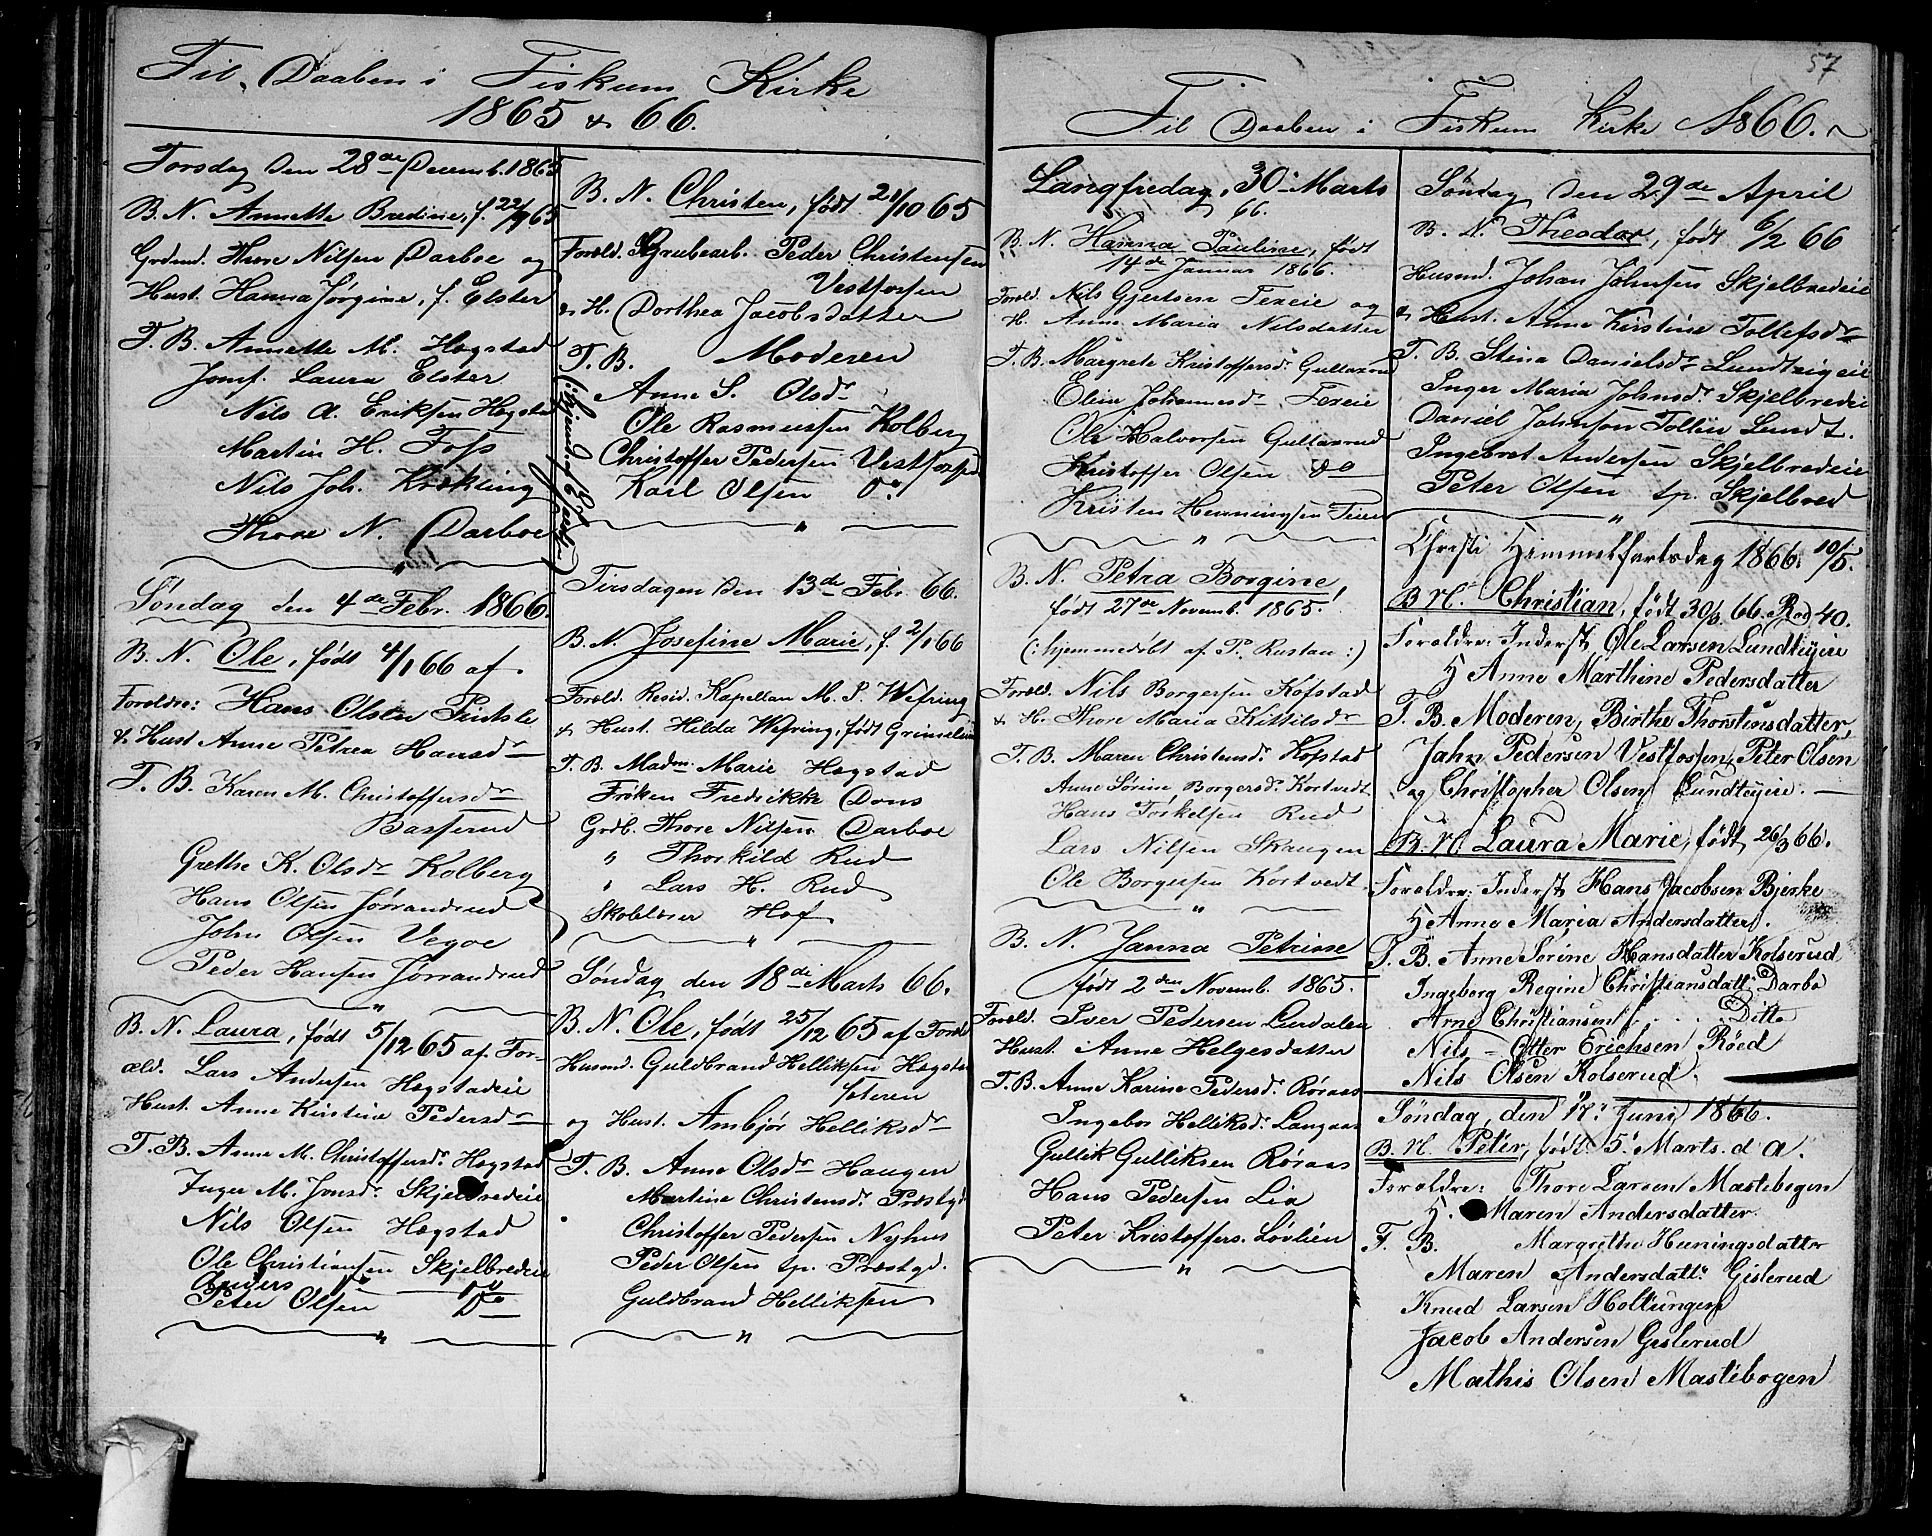 Til Daaben i Fiskum Kirke
1865 & 66.
Torsdag den 28de Decemb. 1865
B. N. Annette Bredine, f. 22/9 65
Grdmd. Thore Nilsen Darboe og
Hust. Hanna Jørgine, f. Elster
T. B. Annette M. Hægstad
Jomf. Laura Elster
Nils A. Eriksen Hægstad
Martin H. Foss
Nils Joh. Krekling
Thore N. Darboe
Søndag den 4de Febr. 1866.
B. N. Ole, født 4/1 66 af
Foreldre: Hans Olsen
& Hust Anne Petrea Hansdr
T. B. Karen M. Christoffersdr
Basserud
Grethe K. Olsdr Kolberg
Hans Olsen Jørrandrud
John Olsen Vegoe
Peder Hansen Jørrandrud
"
B. N. Laura, født 5/12 65 af For-
æld. Lars Andersen Hægstadeie
Hust. Anne Kirstine Pedersdr
T. B. Anne M. Christoffersdr Hægstad
Inger M. Jonsdr Skjelbredeie
Nils Olsen Hægstad
Ole Christiansen Skjelbredeie
Anders
Peter Olsen Do
"
B. N. Christen, født 21/10 65
Foreld. Grubearb. Peder Christensen
Vestfossen
& H. Dorthea Jacobsdatter
T. B. Moderen
Anne S. Olsdr
Ole Rasmussen Kolberg
Christoffer Pedersen Vestfossen
Karl Olsen Do
"
Tirsdagen den 13de Febr. 66.
B. N. Josefine Marie, f. 2/1 66
Foreld. Resid. Kapellan M. S. Wefring
& Hust. Hilda Wefring, født Grimelund
T. B. Madm. Marie Hægstad
Frøken Fredrikke Dons
Grdb. Thore Nilsen Darboe
" Thorkild Rud
" Lars H. Rud
Skolelærer Hof
"
Søndag den 18de Marts 66.
B. N. Ole, født 25/12 65 af Foreld
Husmd. Guldbrand Helliksen Hægstad
og Hust. Ambjør Helliksdr
T. B. Anne Olsdr Haugen
Martine Christensdr Præstgd
Christoffer Pedersen Nyhus
Peder Olsen tp. Præstgd.
Guldbrand Helliksen
"
57
Til Daaben i Fiskum Kirke 1866.
Langfredag, 30. Marts
66.
B. N. Hanna Pauline, født
14de Januar 1866.
Foreld. Nils Gjertsen Fereie og
H. Anne Maria Nilsdatter
T. B. Margrete Kristoffersdr Gullaxrud
Elin Johannesdr Fereie
Ole Halvorsen Gullaxrud
Kristoffer Olsen do
Kristen Henningsen Feien
"
B. N. Petra Borgine,
født 27de Novemb. 1865.
(: hjemmedøbt af P. Rustan :)
Foreld. Nils Borgersen Kofstad
& H. Thore Maria Kittilsdr
T. B. Maren Christensdr Hofstad
Anne Sørine Borgersdr Kortvedt
Hans Torkelsen Rud
Lars Nilsen Skaugen
Ole Borgersen Kortvedt
"
B. N. Janna Petrine
født 2den Novemb. 1865.
Foreld. Iver Pedersen Lurdalen
Hust. Anne Helgesdatter
T. B. Anne Karine Pedersdr Røraas
Ingebor Helliksdr Langaas
Gullik Gulliksen Røraas
Hans Pedersen Lia
Peter Kristoffers. Løvlien
"
Søndag den 29de April
B. N. Theodor, født 6/2 66
Husmd. Johan Johnsen Skjelbredeie
& Hust. Anne Kirstine Tollefsdr
T. B. Stina Danielsdr Lundteigeie
Inger Maria Johnsdr Skjelbredeie
Daniel Johnson Lundt.
Ingebret Andersen Skjelbredeie
Peter Olsen tp. Skjelbred
"
Christi Himmelfartsdag 1866. 10/5.
B. N. Christian, født 30/3 66. Rod 40.
Foreldre: Inderst Ole Larsen Lundteyeie
H Anne Marthine Pedersdatter
T. B. Moderen, Birthe Thorstensdatter,
Jahn Pedersen Vestfossen, Peter Olsen
og Christopher Olsen Lundteyeie.
B. N. Laura Marie, født 26/3 66.
Foreldre: Inderst Hans Jacobsen Bjerke
H Anne Maria Andersdatter.
T. B. Anne Sørine Hansdatter Kolserud
Ingeborg Regine Christiansdatt. Darbo
Arne Christiansen Ditto
Nils Otter Erichsen Røed
Nils Olsen Kolserud
Søndag, den 17. Juni 1866.
B. N. Peter, født 5. Marts. d. A.
Foreldre: Thore Larsen Mastebogen
H. Maren Andersdatter.
T. B. Margrethe Henningsdatter
Maren Andersdatt. Gislerud
Knud Larsen Holtungen
Jacob Andersen Gislerud
Mathis Olsen Mastebogen